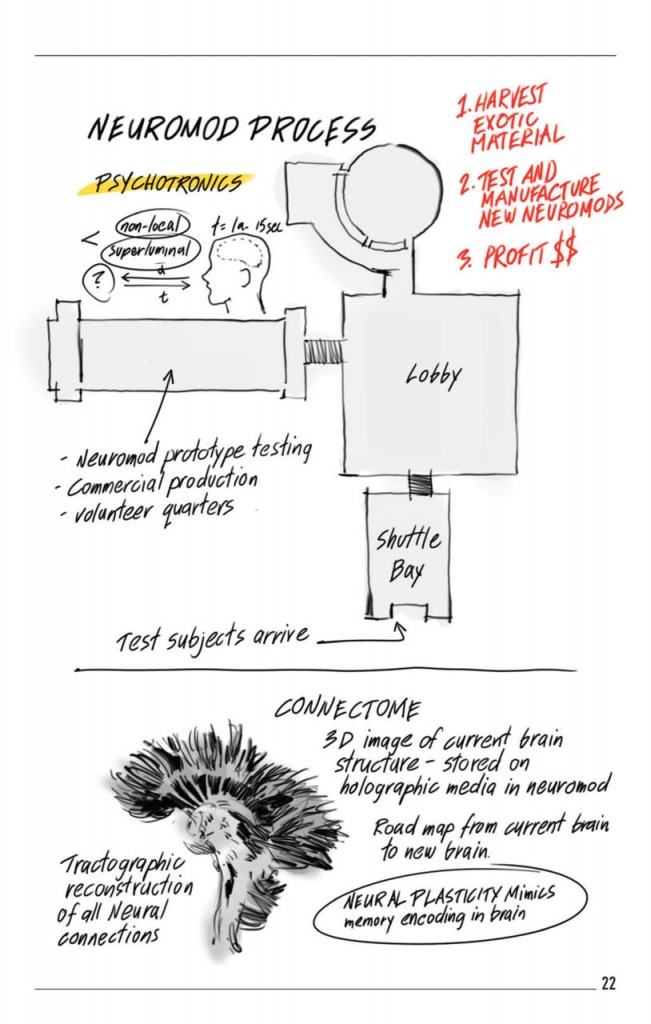 NEUROMOD PROCESS
PSYCHOTRONICS
< non-local
superluminal
t = 1a - 15sec
?
d
t
1. HARVEST
EXOTIC
MATERIAL
2. TEST AND
MANUFACTURE
NEW NEUROMODS
3. PROFIT $$
Lobby
- Neuromod prototype testing
- Commercial production
- volunteer quarters
Shuttle
Bay
Test subjects arrive
CONNECTOME
3D image of current brain
structure - stored on
holographic media in neuromod
Road map from current brain
to new brain.
Tractographic
reconstruction
of all Neural
connections
NEURAL PLASTICITY Mimics
memory encoding in brain
22